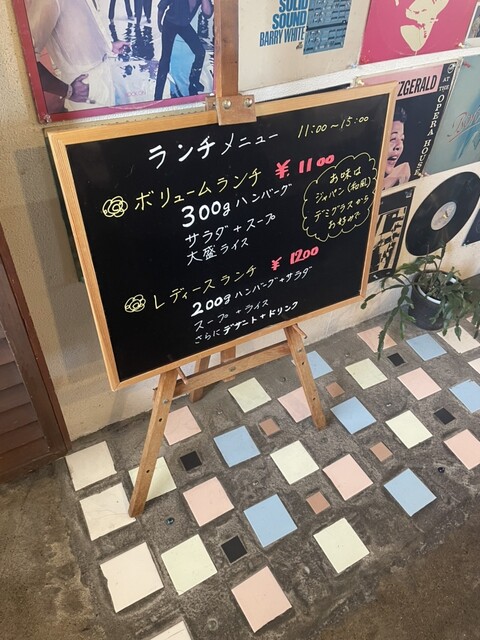 SOLID
SOUND
BARRY WHITE
FITZGERALD
AT THE
OPERA HOUSE
ランチメニュー 11:00~15:00
ボリュームランチ ¥1100
300gハンバーグ
サラダ+スープ
大盛ライス
お味は
ジャパン(和風)
デミグラスから
お好みで
レディースランチ ¥1200
200gハンバーグ+サラダ
スープ+ライス
さらにデザート+ドリンク